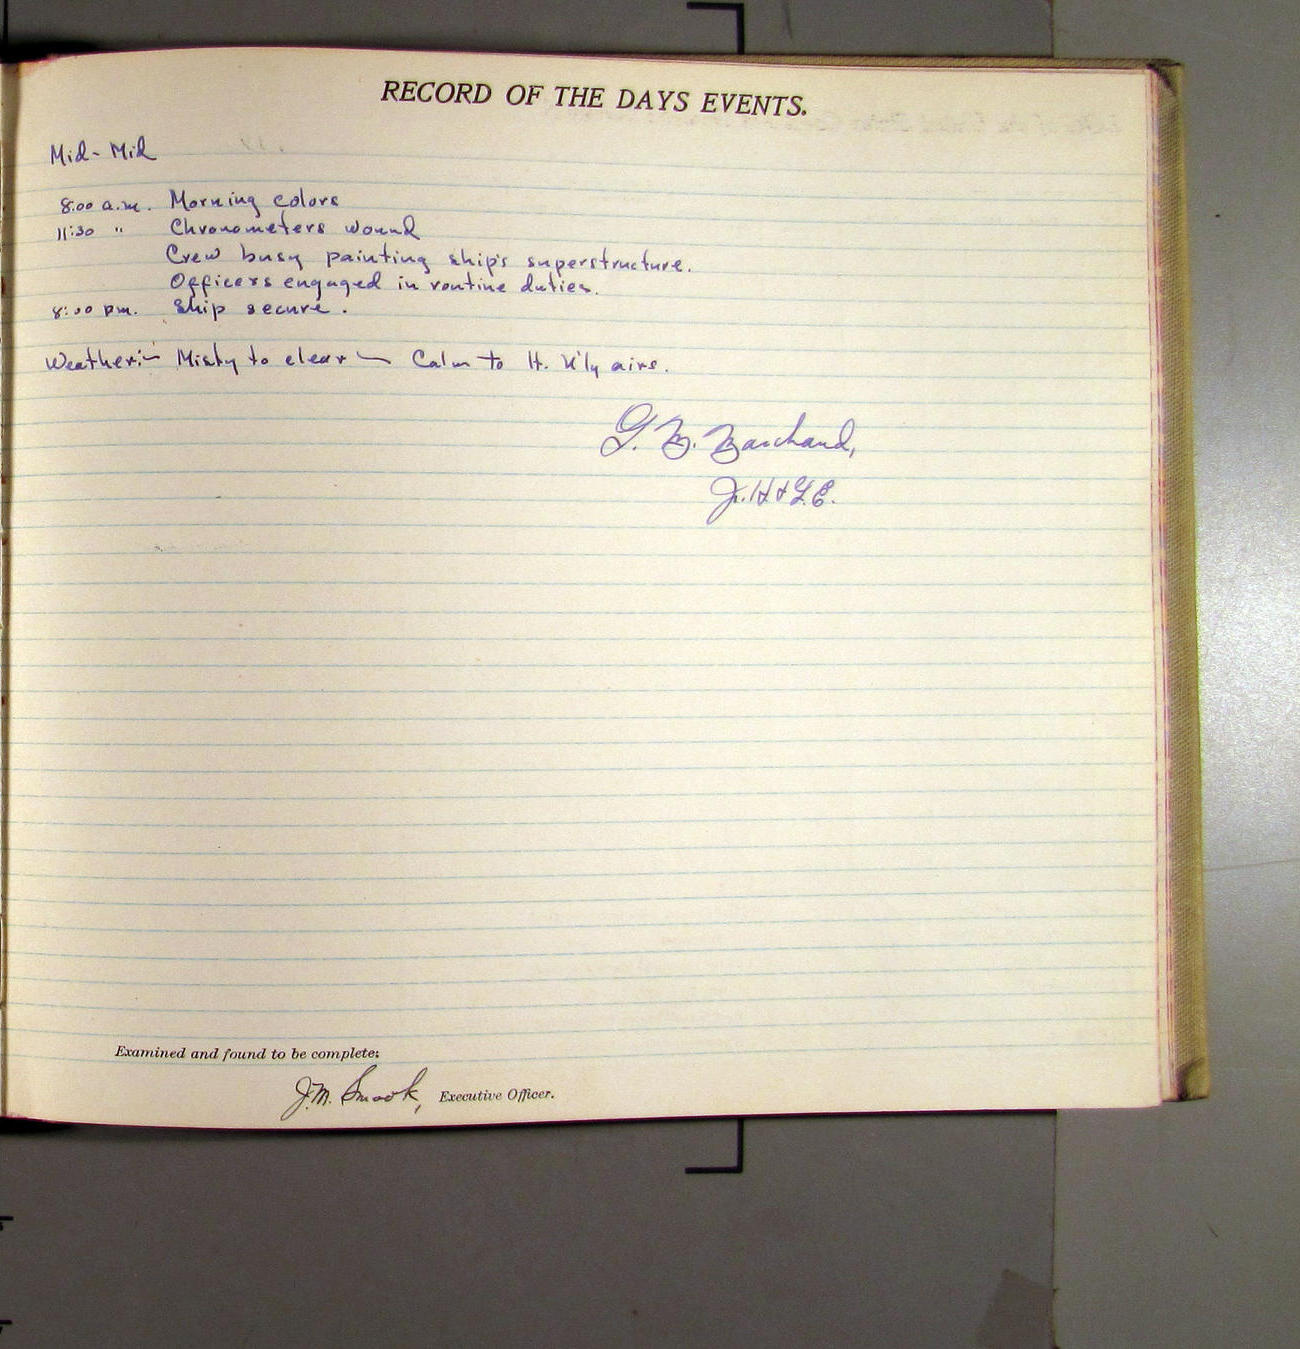 RECORD OF THE DAYS EVENTS.
Mid - Mid
8:00 a.m. Morning colors
11:30 " Chronometers wound
Crew busy painting ship's superstructure.
Officers engaged in routine duties.
8:00 pm. Ship secure.
Weather:- Misty to clear - Calm to lt. N'ly airs.
G. M. Marchand,
Jr. H. & G. E.
Examined and found to be complete:
J.M. Smook, Executive Officer.